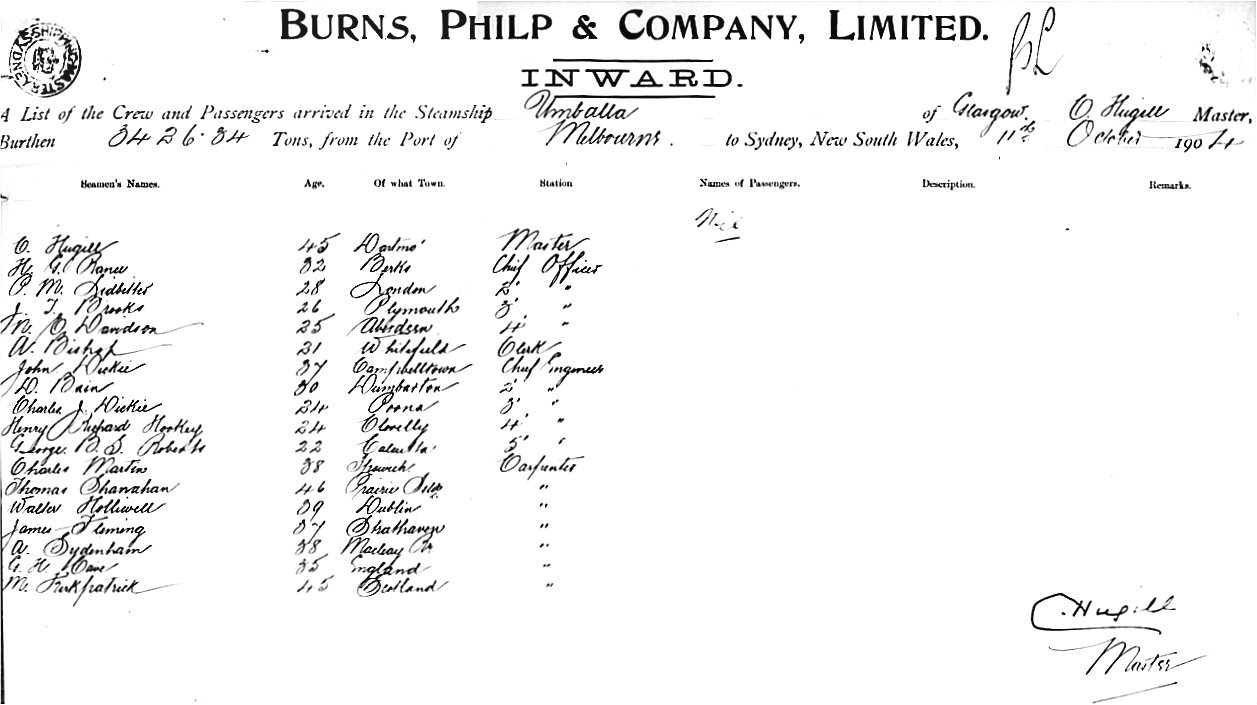 SYDNEY SHIPPING MASTER
BURNS, PHILP & COMPANY, LIMITED.
INWARD.
A List of the Crew and Passengers arrived in the Steamship Umballa of Glasgow. C. Hugill Master,
Burthen 3426.34 Tons, from the Port of Melbourne. to Sydney, New South Wales, 11th October 1904
Seamen's Names. Age. Of what Town. Station Names of Passengers. Description. Remarks.
Nil
C. Hugill 45 Master
H. G. Rance 32 Berks Chief Officer
P. M. Lidbetter 28 London 2' "
J. T. Brooks 26 Plymouth 3' "
Davidson 25 Aberdeen 4' "
A. Bishop 21 Whitefield Clerk
John Dickie 37 Campwelltown Chief Engineer
D. Bain 30 Dumbarton 2' "
Charles J. Dickie 24 Poona 3' "
Henry Richard Hookey 24 Clovelly 4' "
George B. S. Roberts 22 Calcutta 5' "
Charles Martin 38 Carpenter
Thomas Shanahan 46 Prairie "
Walter Holliwell 39 Dublin "
James Fleming 37 Strathaven "
A. Sydenham 38 Macleay "
G. H. Cave 35 England "
M. Kirkpatrick 45 Scotland "
C. Hugill
Master